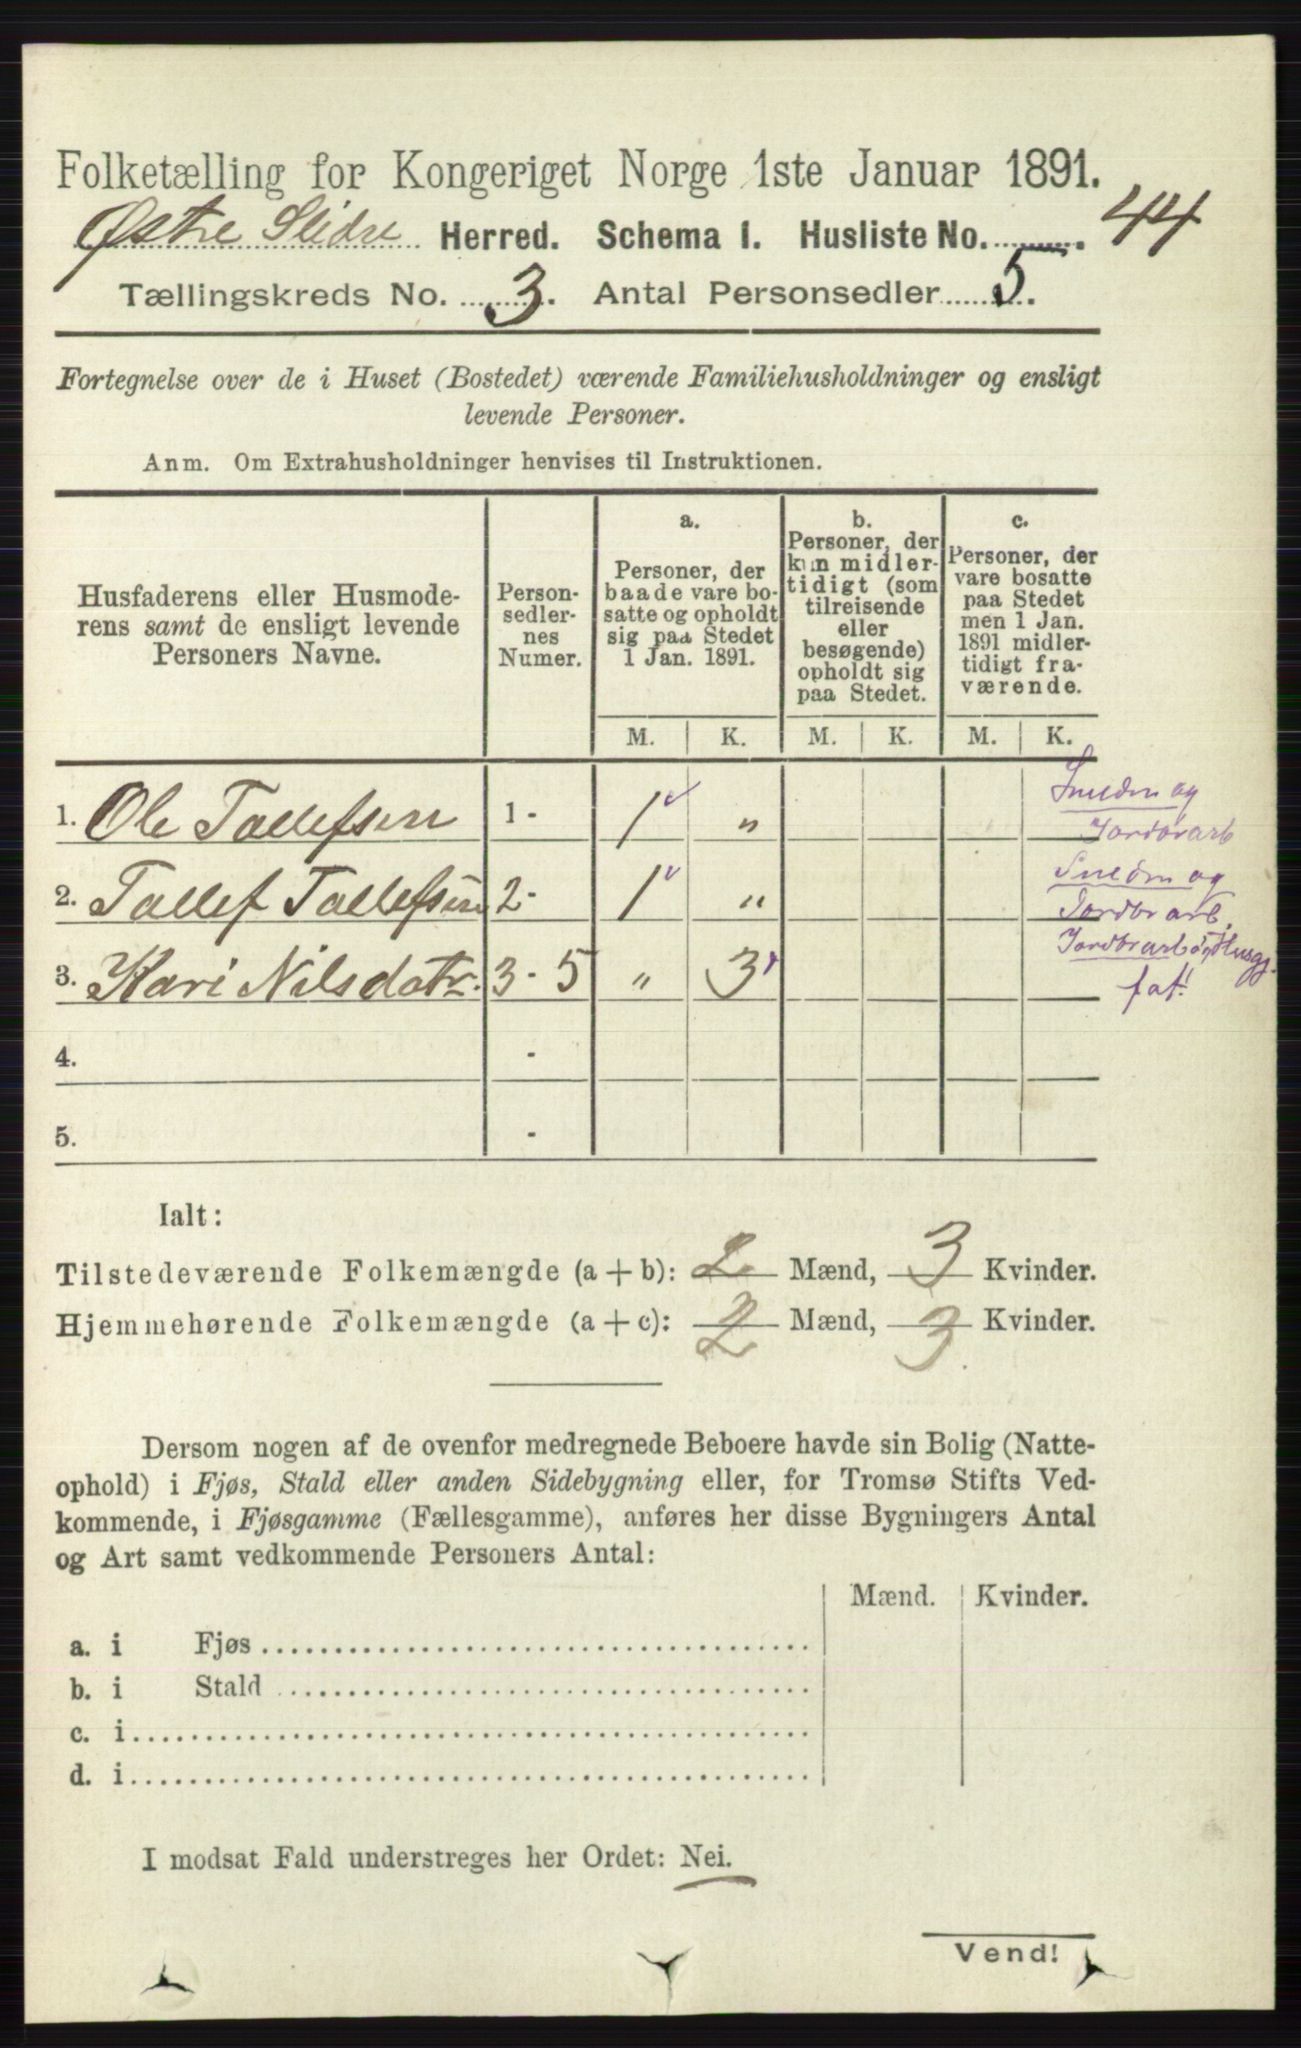 Folketælling for Kongeriget Norge 1ste Januar 1891.
Østre Slidre Herred. Schema 1. Husliste No. 44
Tællingskreds No. 3. Antal Personsedler 5.
Fortegnelse over de i Huset (Bostedet) værende Familiehusholdninger og ensligt
levende Personer.
Anm. Om Extrahusholdninger henvises til Instruktionen.
Husfaderens eller Husmode-
rens samt de ensligt levende
Personers Navne.
Person-
sedler-
nes
Numer.
a.
Personer, der
baade vare bo-
satte og opholdt
sig paa Stedet
1 Jan. 1891.
b.
Personer, der
kun midler-
tidigt (som
tilreisende
eller
besøgende)
opholdt sig
paa Stedet.
c.
Personer, der
vare bosatte
paa Stedet
men 1 Jan.
1891 midler-
tidigt fra-
værende.
M. K. M. K. M. K.
1. Ole Tollefsen 1 - 1 "
Smedm og
Jordbrarb
2. Tollef Tollefsen 2 - 1 "
Smedm og
Jordbrarb.
3. Kari Nilsdatr. 3 - 5 " 3
Jordbrarb
fat.
4. -
5. -
Ialt:
Tilstedeværende Folkemængde (a + b): 2 Mænd, 3 Kvinder.
Hjemmehørende Folkemængde (a + c): 2 Mænd, 3 Kvinder.
Dersom nogen af de ovenfor medregnede Beboere havde sin Bolig (Natte-
ophold) i Fjøs, Stald eller anden Sidebygning eller, for Tromsø Stifts Ved-
kommende, i Fjøsgamme (Fællesgamme), anføres her disse Bygningers Antal
og Art samt vedkommende Personers Antal:
Mænd. Kvinder.
a. i Fjøs
b. i Stald
c. i
d. i
I modsat Fald understreges her Ordet: Nei.
Vend!